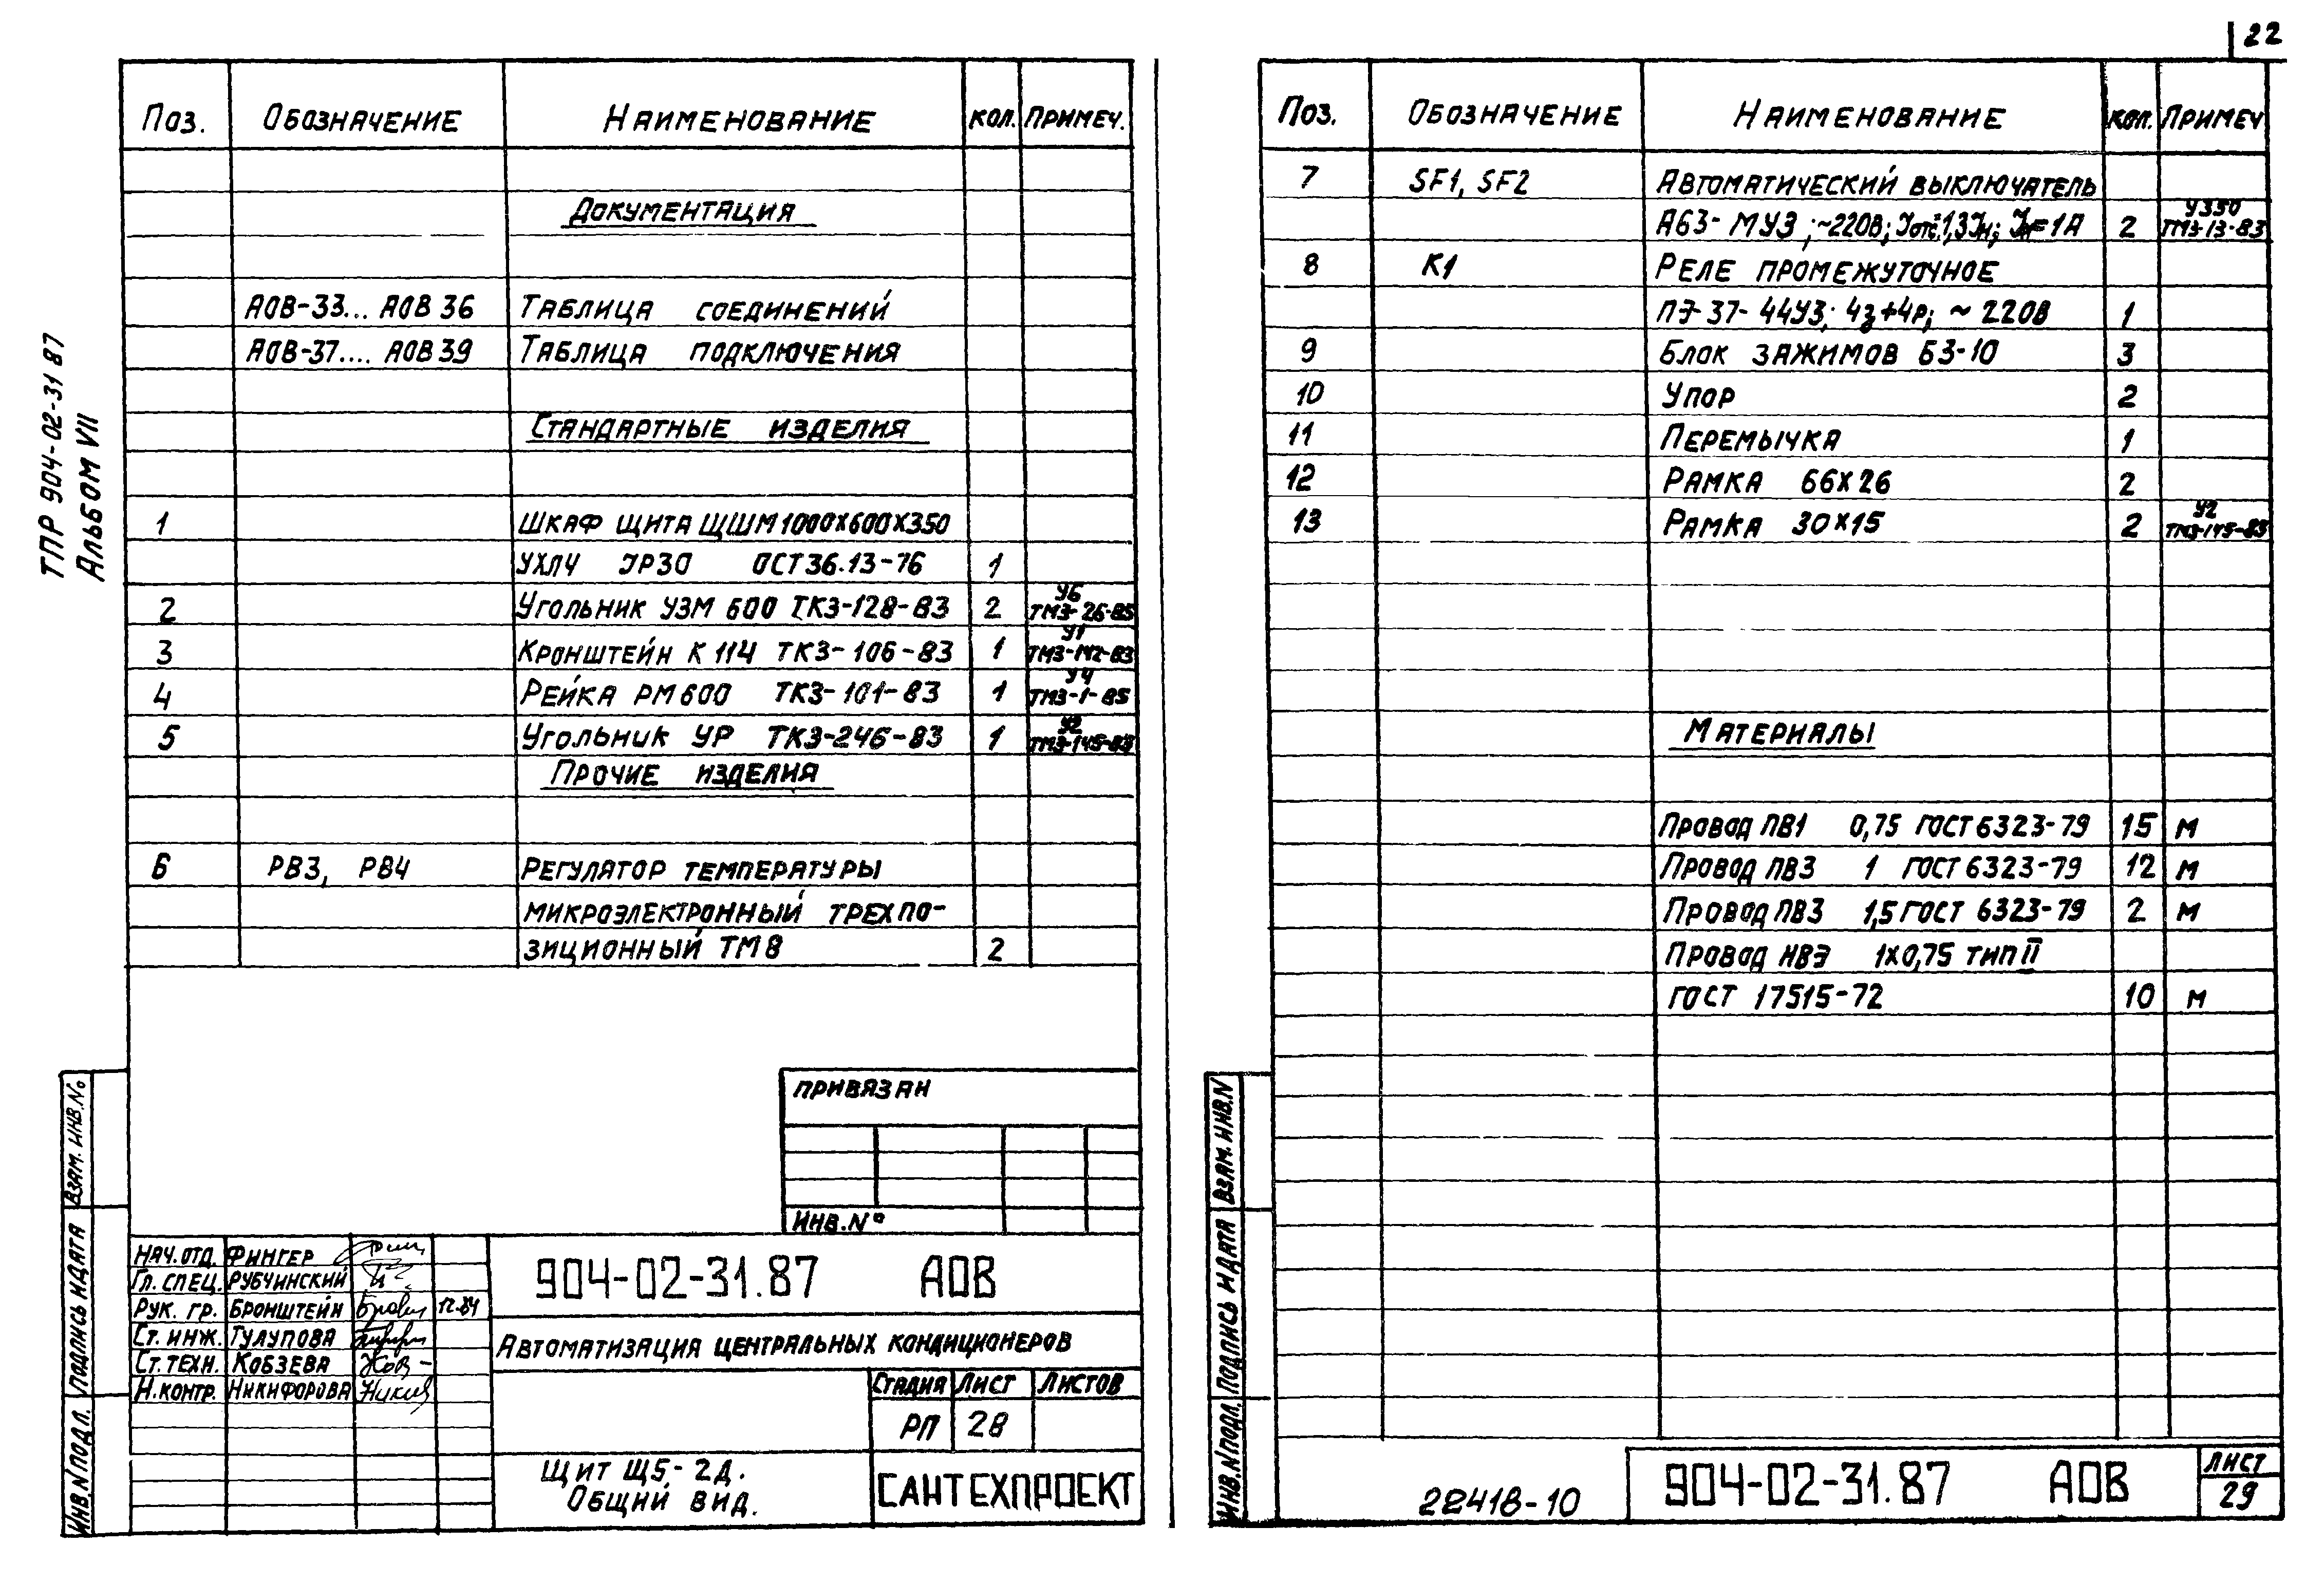 22
ТПР 904-02-31 87
Альбом VII
Поз. Обозначение Наименование кол. примеч.
Документация
АОВ-33... АОВ 36 Таблица соединений
АОВ-37.... АОВ 39 Таблица подключения
Стандартные изделия
1 Шкаф щита ЩШМ 1000х600х350
УХЛ4 IP30 ОСТ36.13-76 1
2 Угольник УЗМ 600 ТКЗ-128-83 2 У6 ТМЗ-26-85
3 Кронштейн К 114 ТКЗ-106-83 1 У1 ТМЗ-142-83
4 Рейка РМ600 ТКЗ-101-83 1 У4 ТМЗ-1-85
5 Угольник УР ТКЗ-246-83 1 У2 ТМЗ-145-83
Прочие изделия
6 РВ3, РВ4 Регулятор температуры
микроэлектронный трехпо-
зиционный ТМ8 2
Привязан
Инв.№
Взам. инв.№
Подпись и дата
Инв.N подл.
Нач.отд. Фингер
Гл. спец. Рубчинский
Рук. гр. Бронштейн 12.84
Ст. инж. Тулупова
Ст. техн. Кобзева
Н.контр. Никифорова
904-02-31.87 АОВ
Автоматизация центральных кондиционеров
Стадия Лист Листов
РП 28
Щит Щ5-2Д.
Общий вид.
САНТЕХПРОЕКТ
Поз. Обозначение Наименование кол. Примеч
7 SF1, SF2 Автоматический выключатель
А63-МУ3; ~220В; Iотс=1,3Iн; Iн=1А 2 У350 ТМЗ-13-83
8 К1 Реле промежуточное
ПЭ-37-44У3; 4з+4р; ~220В 1
9 Блок зажимов БЗ-10 3
10 Упор 2
11 Перемычка 1
12 Рамка 66х26 2
13 Рамка 30х15 2 У2 ТМЗ-145-83
Материалы
Провод ПВ1 0,75 ГОСТ 6323-79 15 м
Провод ПВ3 1 ГОСТ 6323-79 12 м
Провод ПВ3 1,5 ГОСТ 6323-79 2 м
Провод НВЭ 1х0,75 тип II
ГОСТ 17515-72 10 м
Взам. инв.N
Подпись и дата
Инв.N подл.
22418-10
904-02-31.87 АОВ
Лист
29